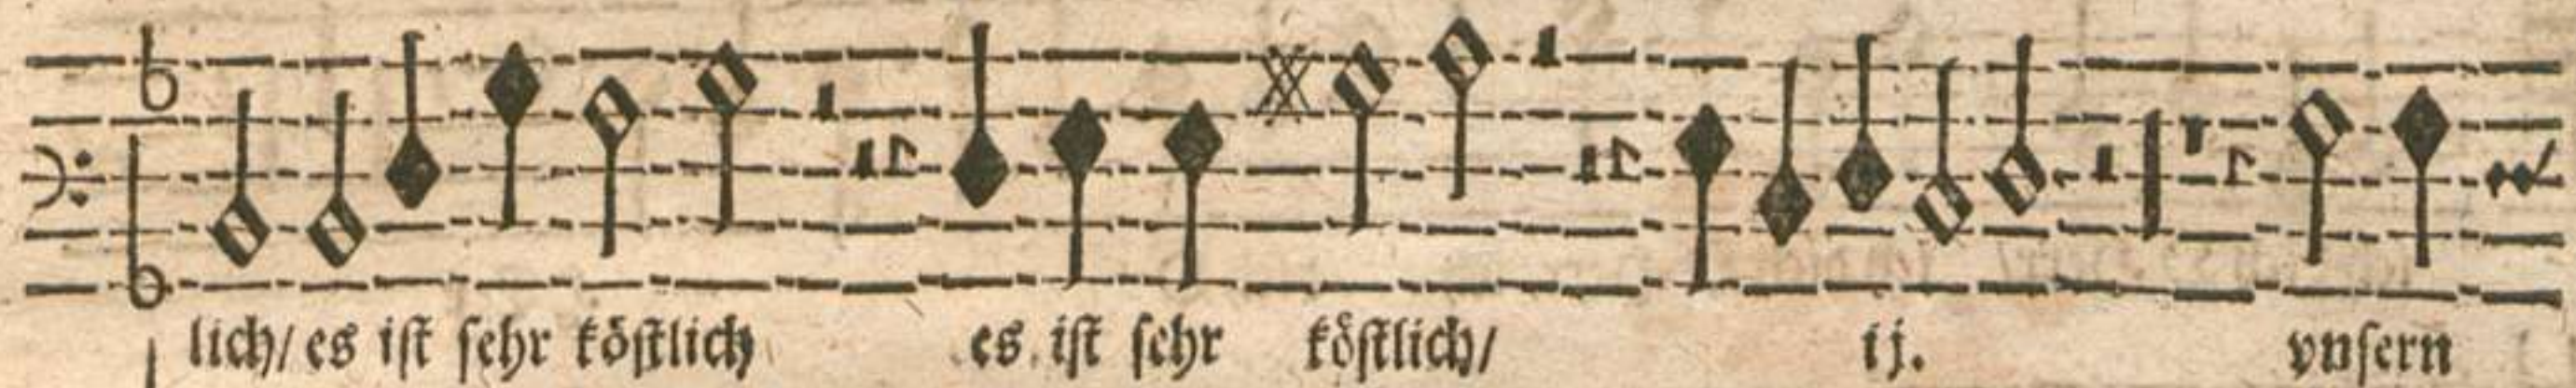 lich/ es iſt ſehr köſtlich es iſt ſehr köſtlich/ ij. vnſern